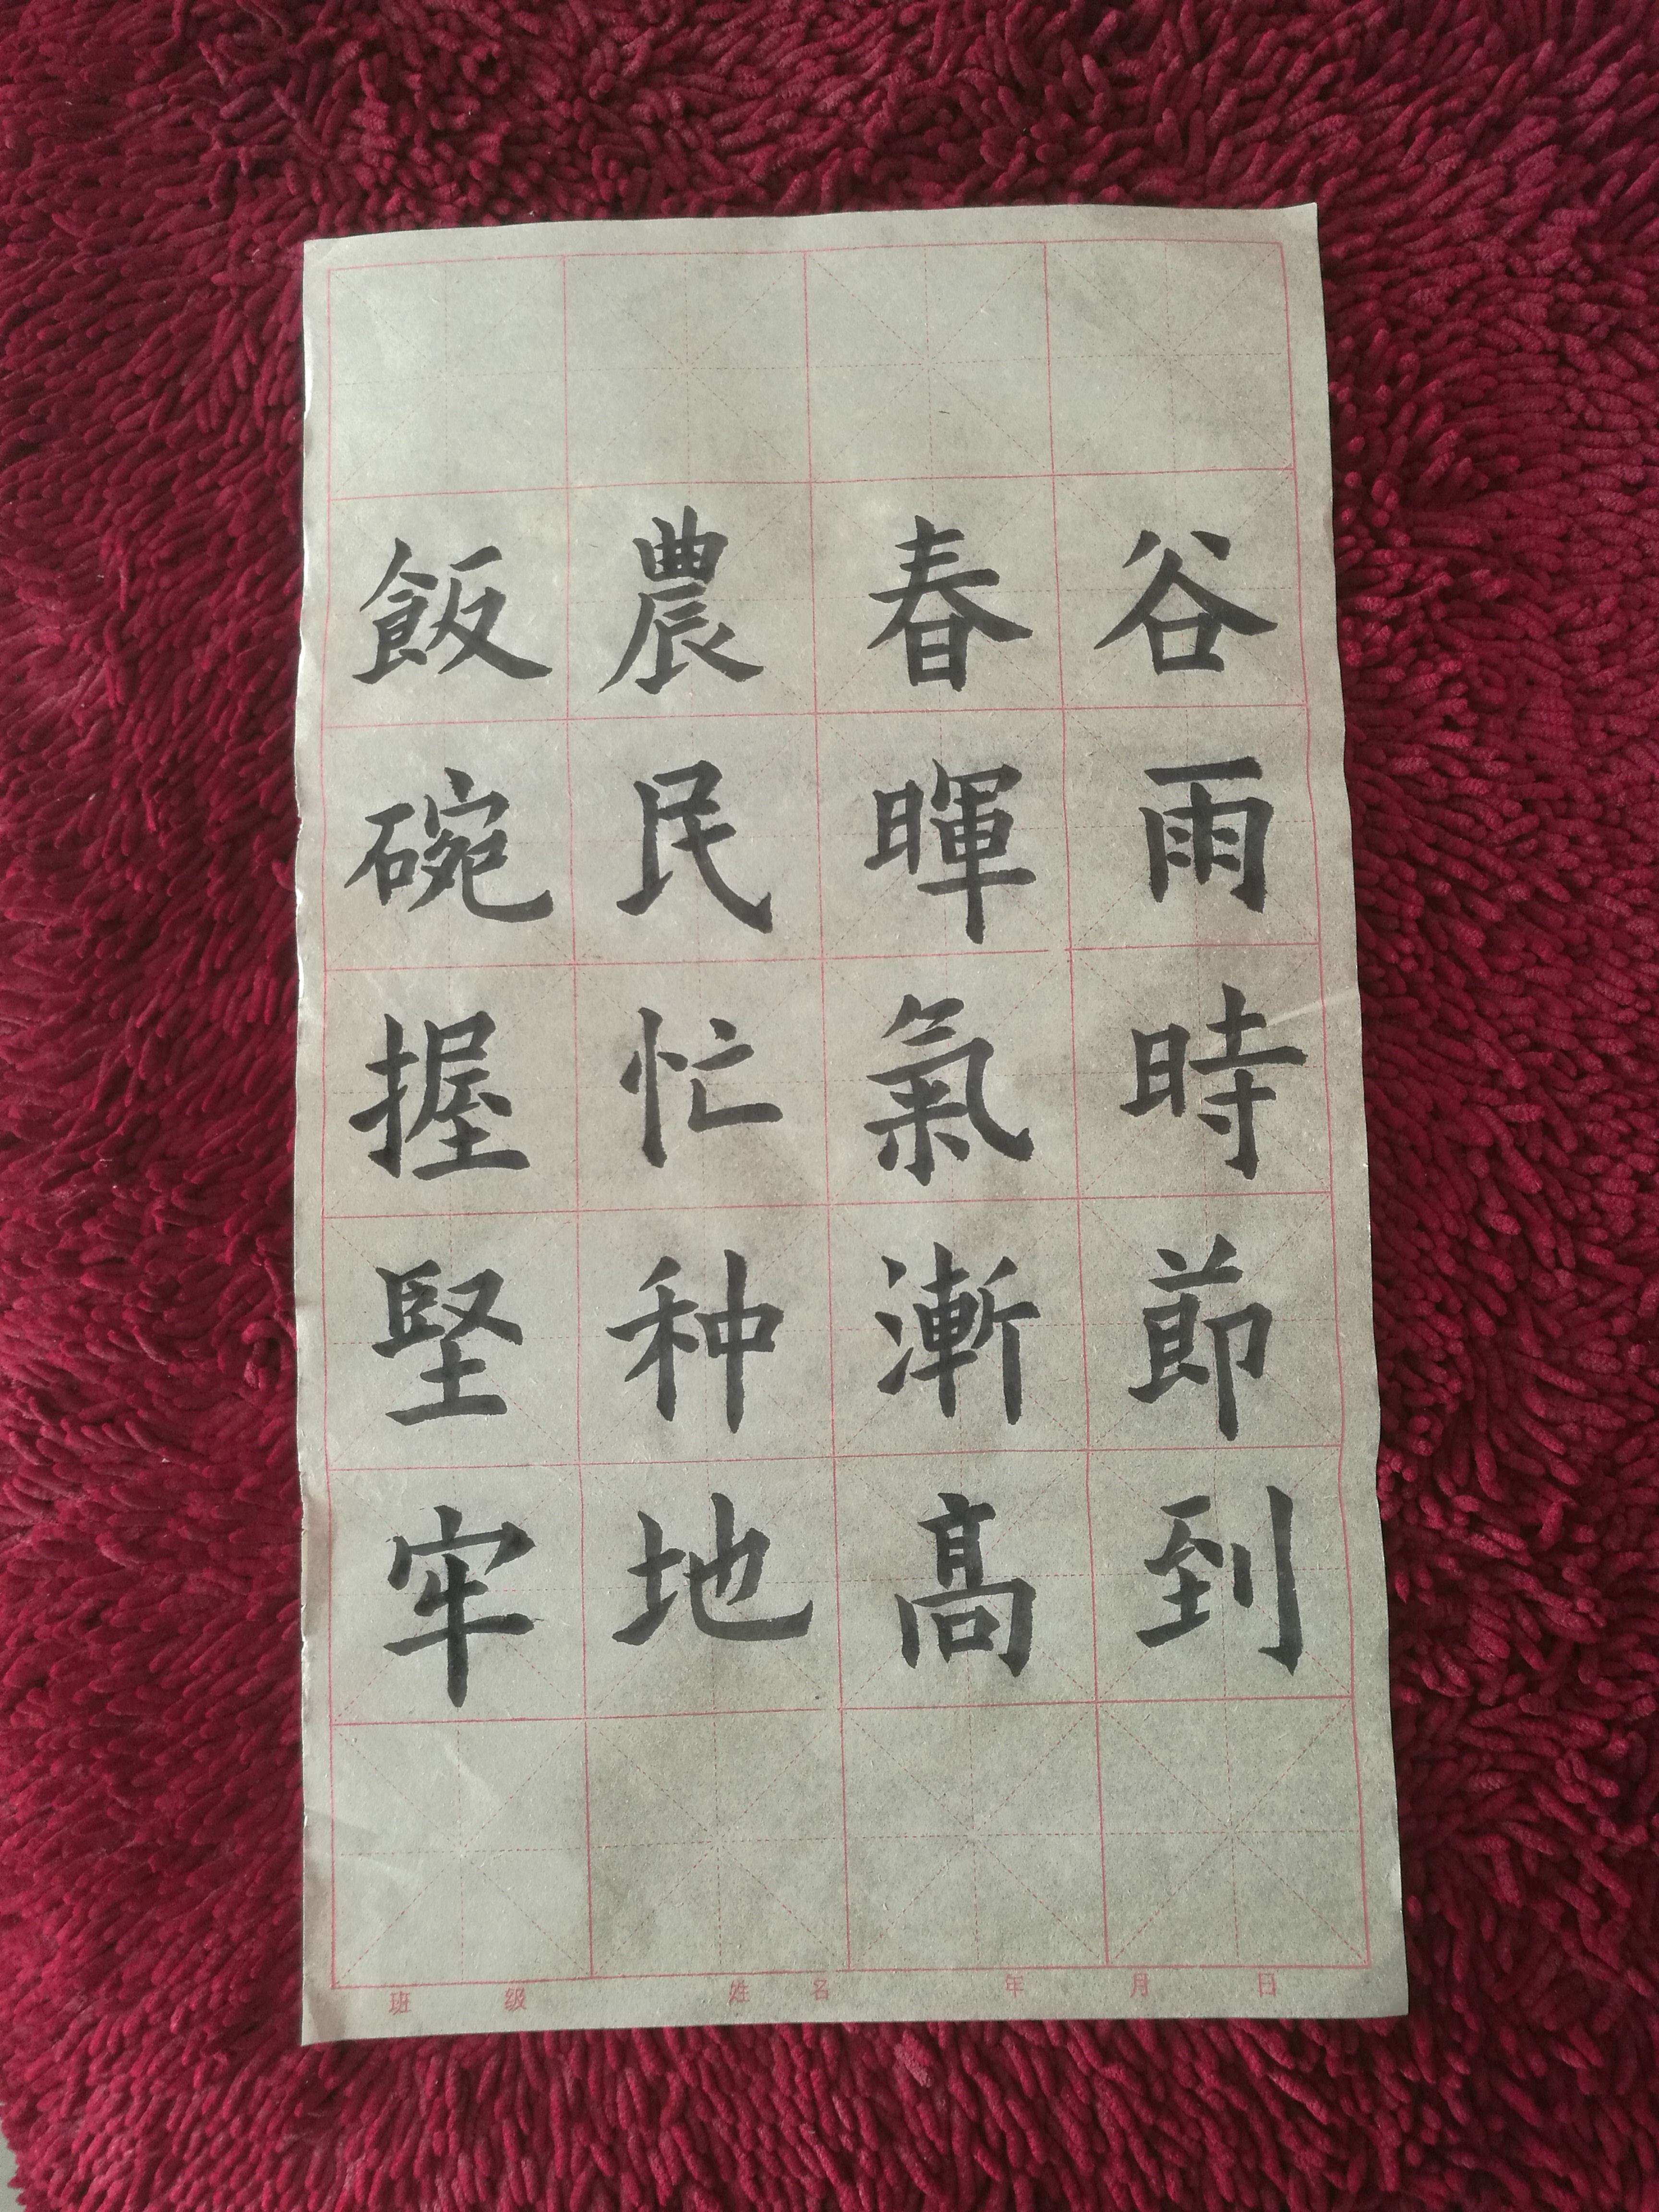 谷雨時節到
春暉氣漸高
農民忙种地
飯碗握堅牢
班级 姓名 年 月 日